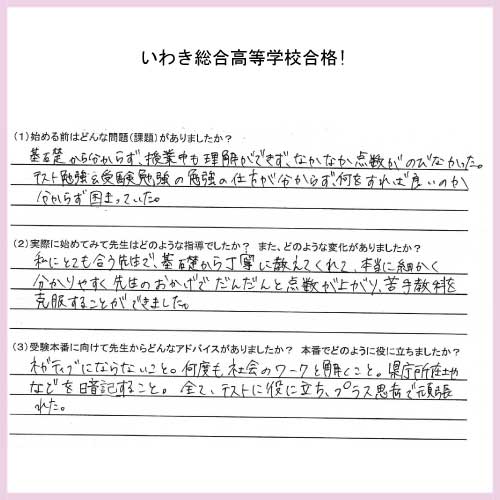 いわき総合高等学校合格！
（1）始める前はどんな問題（課題）がありましたか？
基礎から分からず、授業中も理解ができず、なかなか点数がのびなかった。
テスト勉強や受験勉強の勉強の仕方が分からず、何をすれば良いのか
分からず困まっていた。
（2）実際に始めてみて先生はどのような指導でしたか？ また、どのような変化がありましたか？
私にとても合う先生で、基礎から丁寧に教えてくれて、本当に細かく
分かりやすく先生のおかげでだんだんと点数が上がり、苦手教科を
克服することができました。
（3）受験本番に向けて先生からどんなアドバイスがありましたか？ 本番でどのように役に立ちましたか？
ネガティブにならないこと。何度も社会のワークを解くこと。県庁所在地
などを暗記すること。全て、テストに役に立ち、プラス思考で頑張
れた。